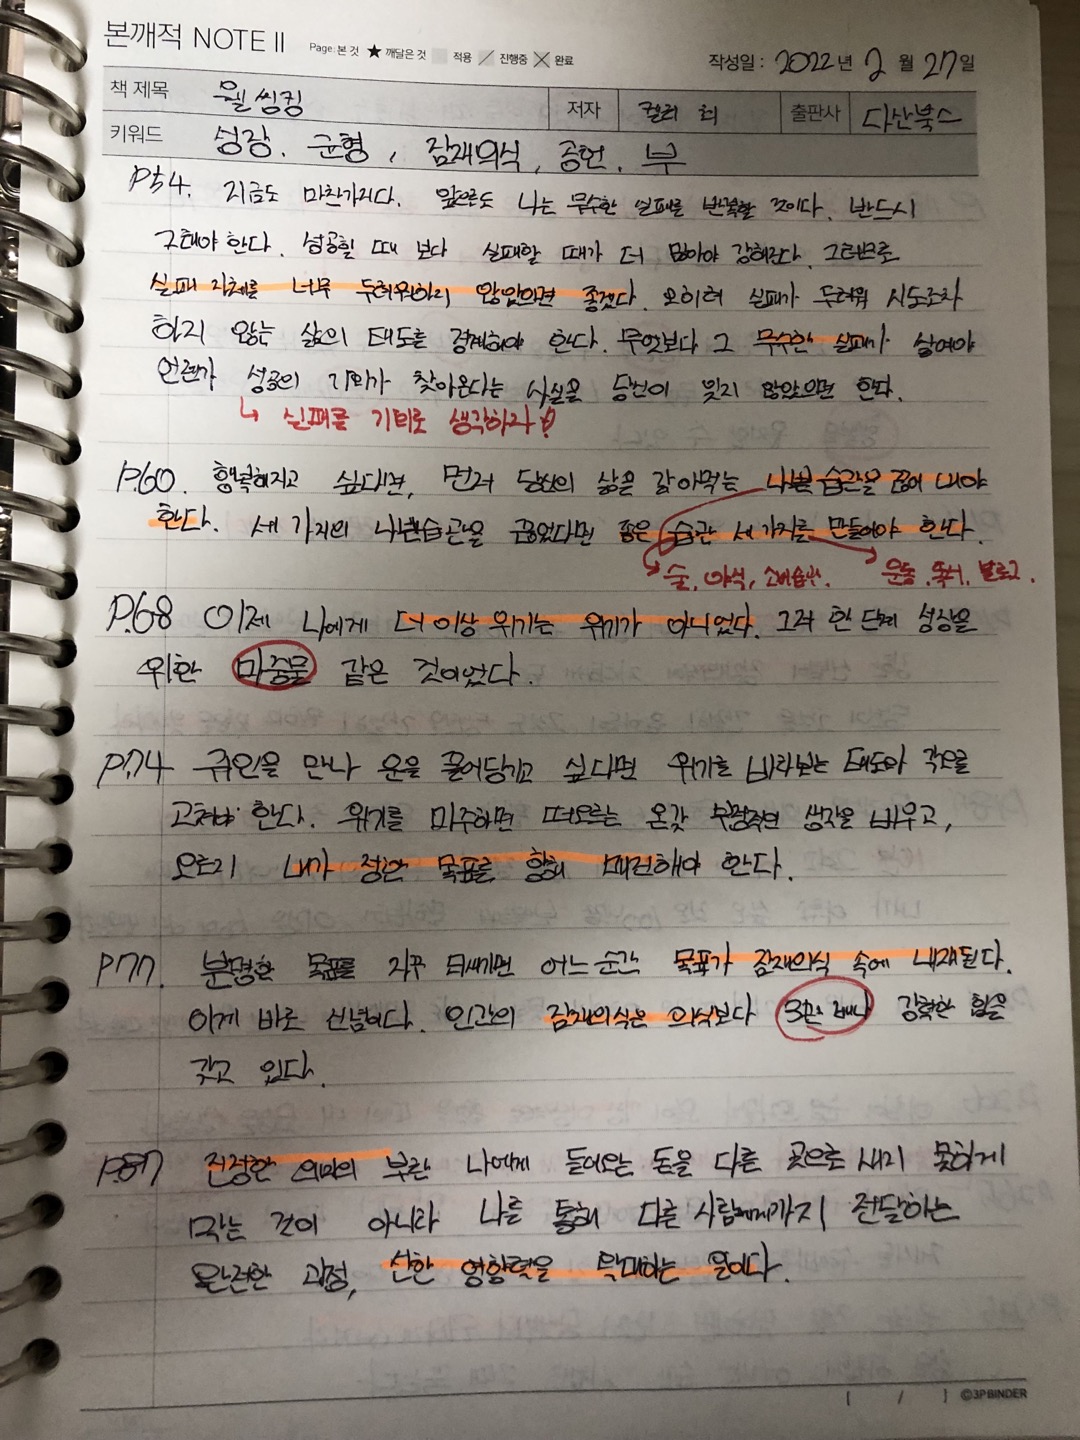 본깨적 NOTE II Page: 본 것 ★ 깨달은 것 적용 진행중 완료 작성일 : 2022년 2월 27일
책 제목 웰씽킹 저자 켈리 최 출판사 다산북스
키워드 성장. 균형, 잠재의식, 공헌. 부
P.54. 지금도 마찬가지다. 앞으로도 나는 무수한 실패를 반복할 것이다. 반드시
그래야 한다. 성공할 때 보다 실패할 때가 더 많아야 강해진다. 그러므로
실패 자체를 너무 두려워하지 않았으면 좋겠다. 오히려 실패가 두려워 시도조차
하지 않는 삶의 태도를 경계해야 한다. 무엇보다 그 무수한 실패가 쌓여야
언젠가 성공의 기회가 찾아온다는 사실을 당신이 잊지 않았으면 한다.
↳ 실패를 기회로 생각하자!
P.60. 행복해지고 싶다면, 먼저 당신의 삶을 갉아먹는 나쁜 습관을 끊어 내야
한다. 세 가지의 나쁜습관을 끊었다면 좋은 습관 세 가지를 만들어야 한다.
술, 야식, 소비습관. 운동. 독서. 블로그.
P.68 이제 나에게 더 이상 위기는 위기가 아니었다. 그저 한 단계 성장을
위한 마중물 같은 것이었다.
P.74 귀인을 만나 운을 끌어당기고 싶다면 위기를 바라보는 태도와 각오를
고쳐야 한다. 위기를 마주하면 떠오르는 온갖 부정적인 생각을 비우고,
오로지 내가 정한 목표를 향해 매진해야 한다.
P.77. 분명한 목표를 자꾸 되새기면 어느 순간 목표가 잠재의식 속에 내재된다.
이게 바로 신념이다. 인간의 잠재의식은 의식보다 3만 배나 강력한 힘을
갖고 있다.
P.87 진정한 의미의 부란 나에게 들어오는 돈을 다른 곳으로 새지 못하게
막는 것이 아니라 나를 통해 다른 사람에게까지 전달하는
완전한 과정, 선한 영향력을 확대하는 일이다.
[ / ] ©3PBINDER